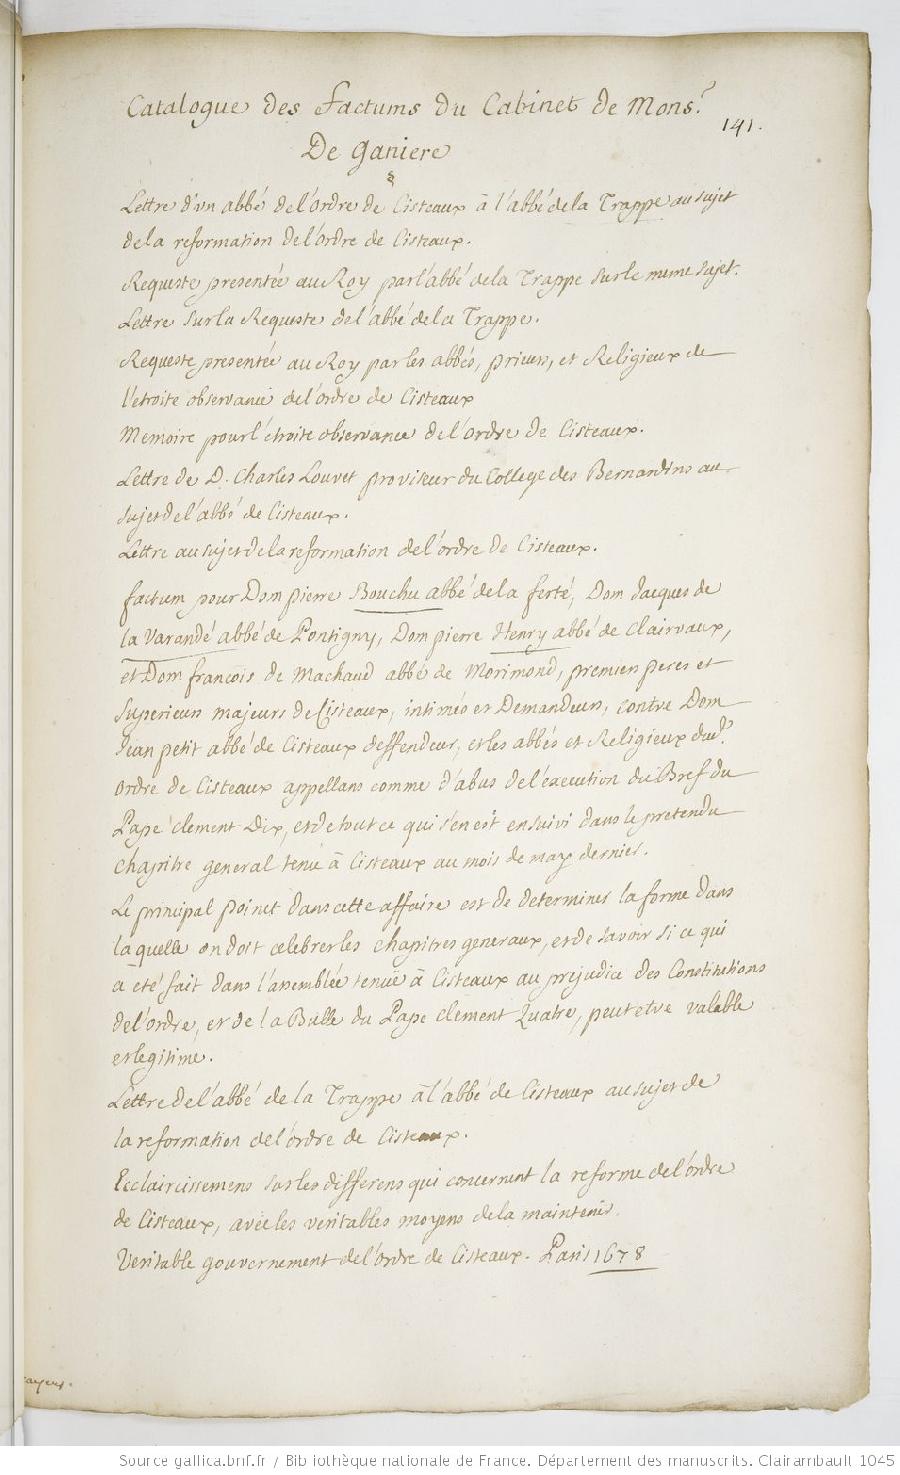 Catalogue des factums du Cabinet de Mons.r
141.
De Ganiere
Lettre d'vn abbé de l'ordre de Cisteaux à l'abbé de la Trappe au sujet
de la reformation de l'ordre de Cisteaux.
Requeste presentée au Roy par l'abbé de la Trappe sur le mème sujet.
Lettre sur la Requeste de l'abbé de la Trappe.
Requeste presentée au Roy par les abbés, prieurs, et Religieux de
l'étroite observance de l'ordre de Cisteaux
Memoire pour l'étroite observance de l'ordre de Cisteaux.
Lettre de D. Charles Louvet proviseur du College des Bernardins au
sujet de l'abbé de Cisteaux.
Lettre au sujet de la reformation de l'ordre de Cisteaux.
factum pour Dom pierre Bouchu abbé de la ferté, Dom Jacques de
la Varande abbé de Pontigny, Dom pierre Henry abbé de Clairvaux,
et Dom francois de Machaud abbé de Morimond, premiers peres et
superieurs majeurs de Cisteaux, intimés et Demandeurs, contre Dom
Jean petit abbé de Cisteaux deffendeur, et les abbés et Religieux dud.t
ordre de Cisteaux appellans comme d'abus de l'execution du Bref du
Pape clement Dix, et de tout ce qui s'en est ensuivi dans le pretendu
chapitre general tenu à Cisteaux au mois de may dernier.
Le principal poinct dans cette affaire est de determiner la forme dans
la quelle on doit celebrer les chapitres generaux, et de savoir si ce qui
a été fait dans l'assemblée tenuë à Cisteaux au prejudice des Constitutions
de l'ordre, et de la Bulle du Pape clement Quatre, peut etre valable
et legitime.
Lettre de l'abbé de la Trappe à l'abbé de Cisteaux au sujet de
la reformation de l'ordre de Cisteaux.
Ecclaircissemens sur les differens qui concernent la reforme de l'ordre
de Cisteaux, avec les veritables moyens de la maintenir.
Veritable gouvernement de l'ordre de Cisteaux. Paris 1678
Source gallica.bnf.fr / Bibliothèque nationale de France. Département des manuscrits. Clairambault 1045